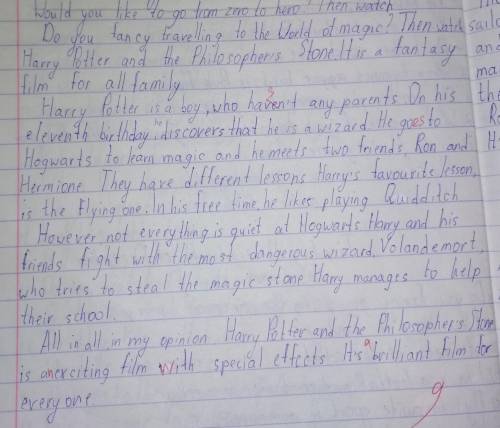 Would you like to go from zero to hero? Then watch
Do you fancy travelling to the World of magic? Then watch
Harry Potter and the Philosopher's Stone. It is a fantasy
film for all family
Harry Potter is a boy, who haven't any parents On his
eleventh birthday he discovers that he is a wizard He goes to
Hogwarts to learn magic and he meets two friends, Ron and
Hermione They have different lessons Harry's favourite lesson,
is the flying one. In his free time, he likes playing Quidditch
However, not everything is quiet at Hogwarts Harry and his
friends fight with the most dangerous wizard, Volandemort,
who tries to steal the magic stone Harry manages to help
their school.
All in all, in my opinion Harry Potter and the Philosopher's Stone
is an exciting film with special effects It's a brilliant film for
everyone
9